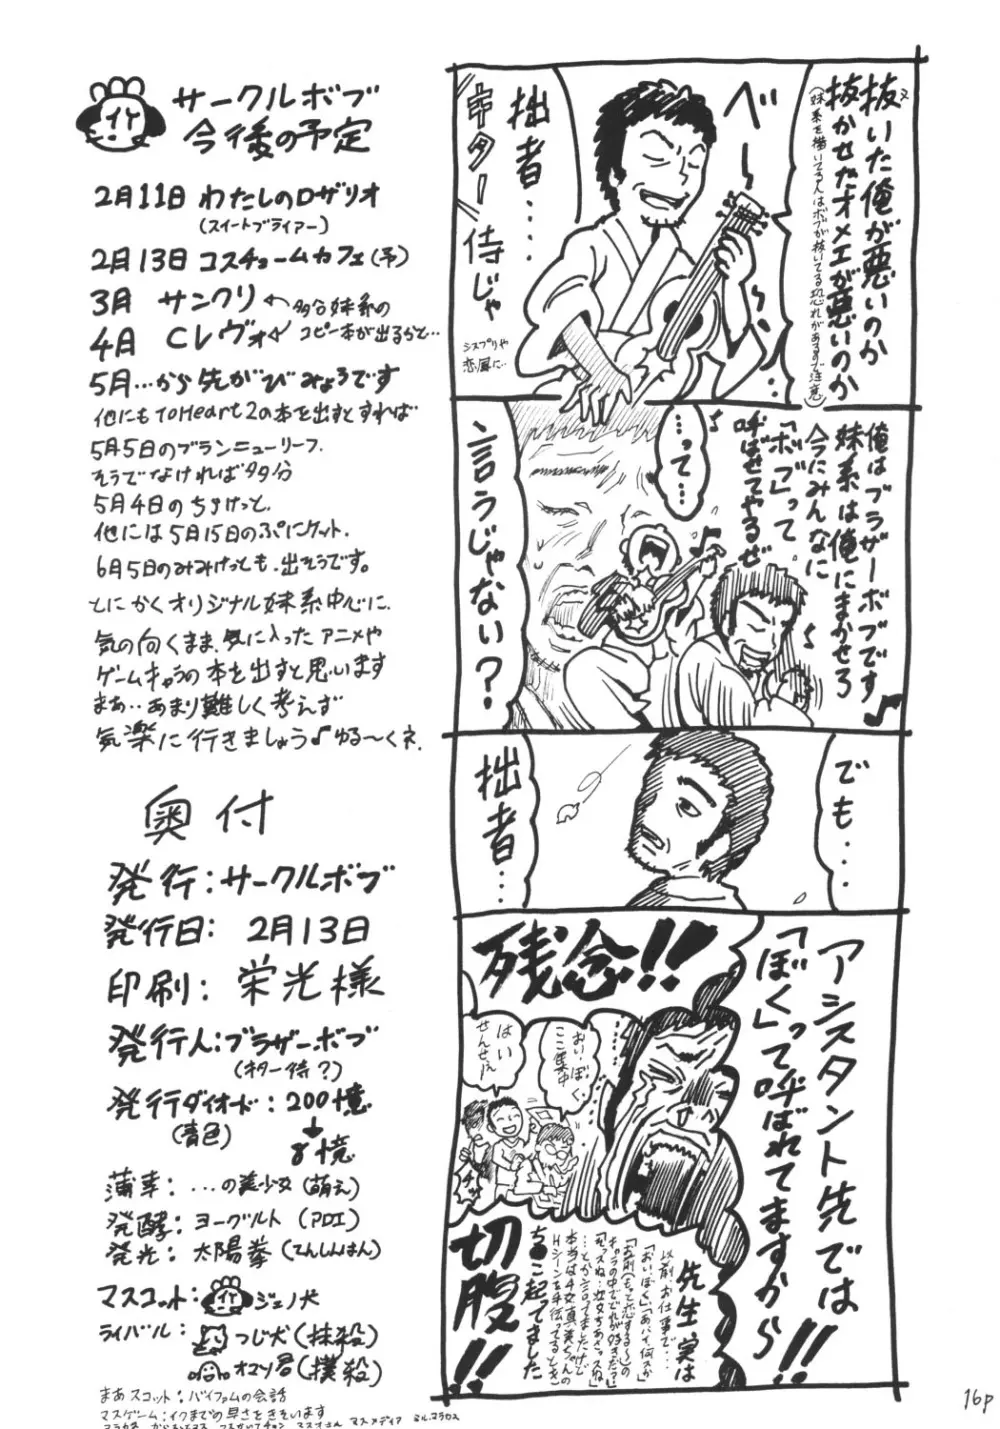 サークルボブ
今後の予定
2月11日 わたしのロザリオ
(スイートブライアー)
2月13日 コスチュームカフェ(予)
3月 サンクリ ← 多分妹系の
4月 Cレヴォ ← コピー本が出るらと…
5月…から先がびみょうです
他にもToHeart2の本を出すとすれば
5月5日のブランニューリーフ.
そうでなければ多分
5月4日のちょけっと.
他には5月15日のぷにケット.
6月5日のみみけっとも.出そうです。
とにかくオリジナル妹系中心に.
気の向くまま.気に入ったアニメや
ゲームキャラの本を出すと思います
まぁ‥あまり難しく考えず
気楽に行きましょう♪ゆる〜くネ.
奥付
発行:サークルボブ
発行日: 2月13日
印刷: 栄光様
発行人:ブラザーボブ
(ギター侍?)
発行ダイオード:200億
(青色)
↓
8億
薄幸:...の美少女(萌え)
発酵:ヨーグルト(PDI)
発光:太陽拳(てんしんはん)
マスコット: ジェノ犬
ライバル: つじ犬(抹殺)
オマソ君(撲殺)
まあスコット:バイファムの会話
マスゲーム:イクまでの早さをきそいます
抜いた俺が悪いのか
抜かせたオメエが悪いのか
(妹系を描いてる人はボブが抜いてる恐れがあるので注意)
べ〜〜ン‥
拙者‥‥
ギター侍じゃ
シスプリや
恋風に…
俺はブラザーボブです
妹系は俺にまかせろ
今にみんなに
「ボブ」って
呼ばせてやるぜ
…って…
言うじゃない?
でも...
拙者...
アシスタント先では
「ぼく」って呼ばれてますから!!
残念!!
おい、ぼく.
ここ集中
はい
せんせぇ
先生実は
以前、お仕事で…
「おいぼく」「あハイ何スか」
「お前(もっと恋する〜)の
キャラの中でどれが好きだ?」
…とか言ってましたけど
本当は4女真美ちゃんの
Hシーンを手伝ってるとき
ち●こ起ってました
切腹!!
16p